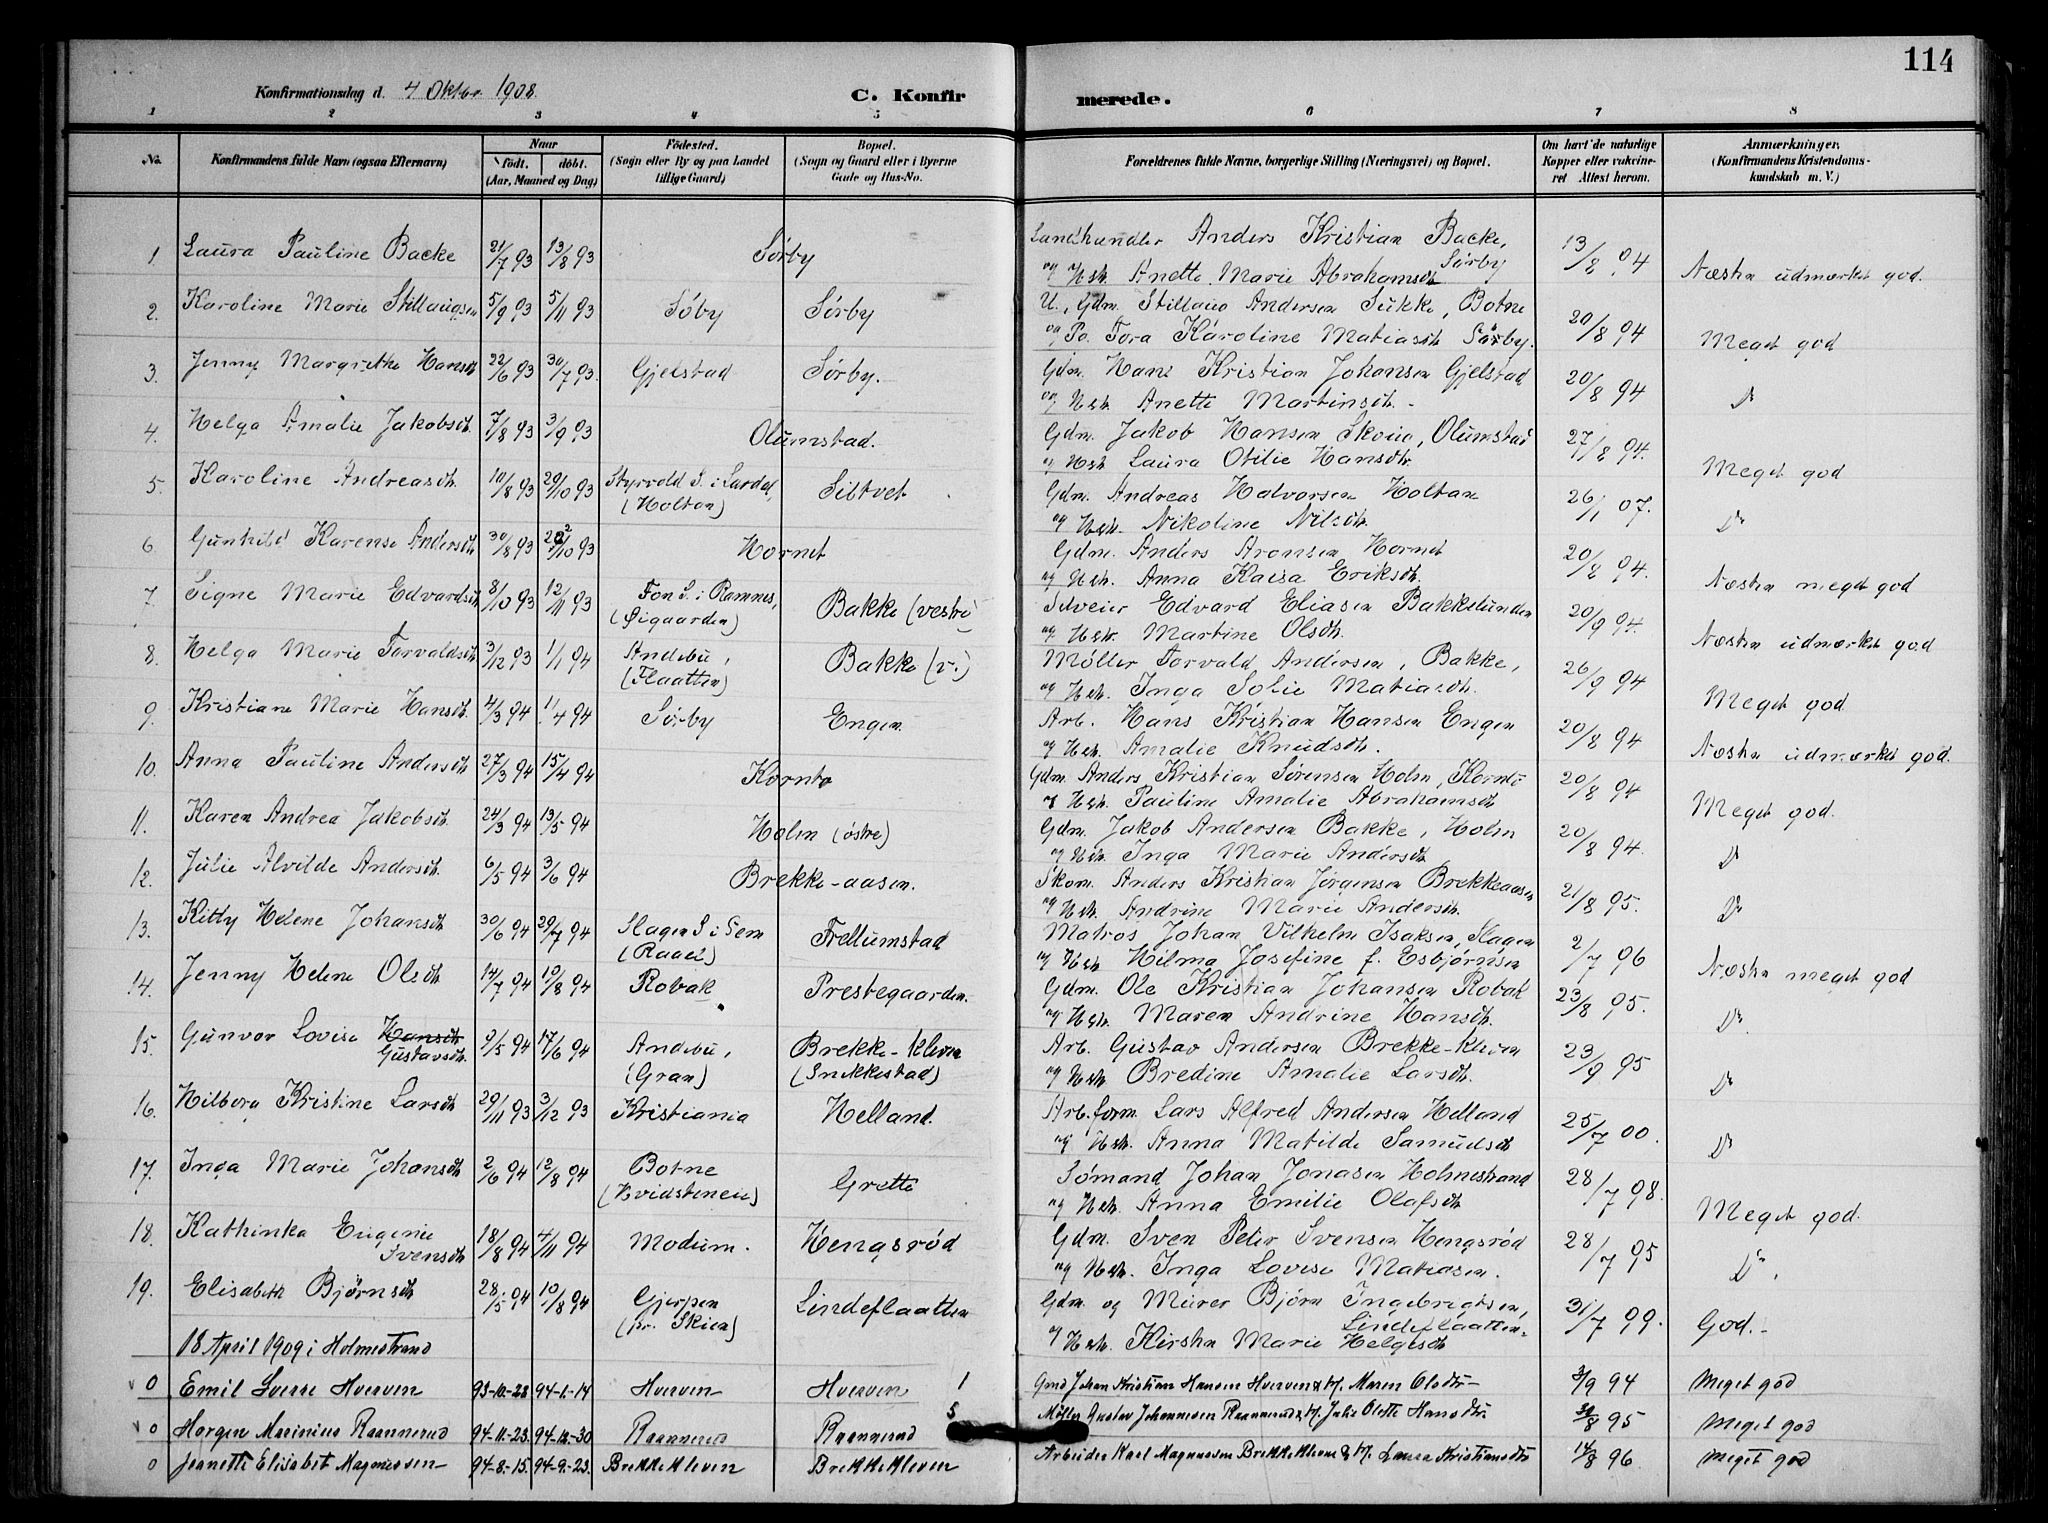 114
Konfirmationsdag d. 4 Oktbr. 1908.
C. Konfirmerede.
1 2 3 4 5 6 7 8
No. Konfirmandens fulde Navn (ogsaa Efternavn) Naar født. døbt. (Aar, Maaned og Dag) Fødested. (Sogn eller By og paa Landet tillige Gaard) Bopæl. (Sogn og Gaard eller i Byerne Gade og Hus-No. Forældrenes fulde Navne, borgerlige Stilling (Næringsvei) og Bopæl. Om havt de naturlige Kopper eller vakcineret Attest herom. Anmærkninger. (Konfirmandens Kristendomskundskab m. V.)
1. Laura Pauline Backe 21/7 93 13/8 93 Sørby Landhandler Anders Kristian Backe, Sørby
og Hst. Anette Marie Abrahamsdt. 13/8 04 Næsten udmærket god.
2. Karoline Marie Stillaugsen 5/9 93 5/11 93 Søby Sørby U., Gdm. Stillaug Andersen Sukke, Botne
og Po. Tora Karoline Matiasdt. Sørby. 20/8 94 Meget god
3. Jenny Margrethe Hansdt. 22/6 93 30/7 93. Gjelstad Sørby. Gdm. Hans Kristian Johansen Gjelstad
og Hst. Anette Martinsdt. 20/8 94 Do
4. Helga Amalie Jakobsdt. 7/8 93 3/9 93 Olumstad. Gdm. Jakob Hansen Skoug, Olumstad
og Hst. Laura Otilie Hansdt. 27/8 94. Meget god
5. Karoline Andreasdt. 10/8 93 29/10 93 Styrvold S. i Lardal, (Holtan) Siltvet Gdm. Andreas Halvorsen Holtan
og Hst. Nikoline Nilsdt. 26/1 07. Do
6. Gunhild Karense Andersdt. 30/8 93 22/10 93 Hornet Gdm. Anders Aronsen Hornet
og Hst. Anna Kaisa Eriksdt. 20/8 94. Næsten meget god
7. Signe Marie Edvardsdt. 8/10 93 12/11 93 Fon S. i Ramnes, (Øigaarden) Bakke (vestre) Selveier Edvard Eliasen Bakkelunden
og Hst. Martine Olsdt. 20/9 94. Næsten udmærket god
8. Helga Marie Torvaldsdt. 3/12 93 1/1 94 Andebu, (Flaatten) Bakke (v.) Møller Torvald Andersen, Bakke,
og Hst. Inga Sofie Matiasdt. 26/9 94 Meget god
9. Kristiane Marie Hansdt. 4/3 94 11/4 94 Sørby Engen. Arb. Hans Kristian Hansen Engen
og Hst. Amalie Knudsdt. 20/8 94 Næsten udmærket god.
10. Anna Pauline Andersdt. 27/3 94 15/4 94 Kornto Gdm. Anders Kristian Sørensen Holm, Kornto
og Hst. Pauline Amalie Abrahamsdt. 20/8 94 Meget god.
11. Karen Andrea Jakobsdt. 24/3 94 13/5 94 Holm (østre) Gdm. Jakob Andersen Bakke, Holm
og Hst. Inga Marie Andersdt. 20/8 94. Do
12. Julie Alvilde Andersdt. 6/5 94 3/6 94 Brekke-aasen. Skom. Anders Kristian Jørgensen Brekkeaasen
og Hst. Andrine Marie Andersdt. 21/8 95. Do
13. Kitty Helene Johansdt. 30/6 94 29/7 94 Slagen S. i Sem (Raael) Frellumstad Matros Johan Vilhelm Isaksen, Slagen
og Hst. Hilma Josefine f. Esbjørnsen 2/7 96 Næsten meget god
14. Jenny Helene Olsdt. 14/7 94 19/8 94 Robak Prestegaarden. Gdm. Ole Kristian Johansen Robak
og Hst. Maren Andrine Hansdt. 23/8 95. Do
15. Gunvor Lovise Hansdt. Gustavsdt. 9/5 94 17/6 94 Andebu, (Gran) Brekke-kleven (Snekkestad) Arb. Gustav Andersen Brekke-kleven
og Hst. Bredine Amalie Larsdt. 23/9 95 Do
16. Hilborg Kristine Larsdt. 29/11 93 3/12 93 Kristiania Helland. Arb.form. Lars Alfred Andersen Helland
og Hst. Anna Matilde Samuelsdt. 25/7 00. Do
17. Inga Marie Johansdt. 2/6 94 12/8 94 Botne (Hvidsteneie) Grette Sømand Johan Jonasen Holmestrand
og Hst. Anna Emilie Olafsdt. 28/7 98. Meget god.
18. Kathinka Eugenie Svensdt. 18/8 94 4/11 94 Modum. Hengsrød Gdm. Sven Peter Svensen Hengsrød
og Hst. Inga Lovise Matiasen. 28/7 95 Do.
19. Elisabeth Bjørnsdt. 28/5 94 10/8 94 Gjerpen (pr. Skien) Lindeflaatten Gdm. og Murer Bjørn Ingebrigtsen, Lindeflaatten
og Hst. Kirsten Marie Helgesdt. 31/7 99. God.
18 April 1909 i Holmestrand
0 Emil Sverre Hverven 93-10-28 94-1-14 Hverven Hverven 1 Gmd Johan Kristian Hansen Hverven & H. Maren Olsdtr 3/9 94 Meget god
0 Horgen Marinius Raannerud 94-11-23. 94-12-30 Raannerud Raannerud 5 Møller Gustav Johannesen Raannerud & H. Julie Olette Hansdtr 30/8 95 Meget god
0 Jeanette Elisabet Magnussen 94-8-15. 94-9-23. Brekkekleven Brekkekleven Arbeider Karl Magnussen Brekkekleven & H. Laura Kristiansdtr 14/8 96 Meget god